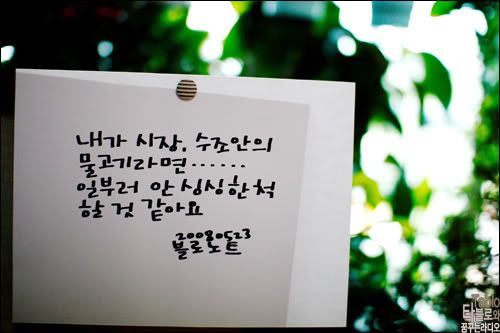 내가 시장, 수조안의
물고기라면······
일부러 안 싱싱한 척
할 것 같아요
20080523
블로노트
Tablo
타블로와
꿈꾸는라디오